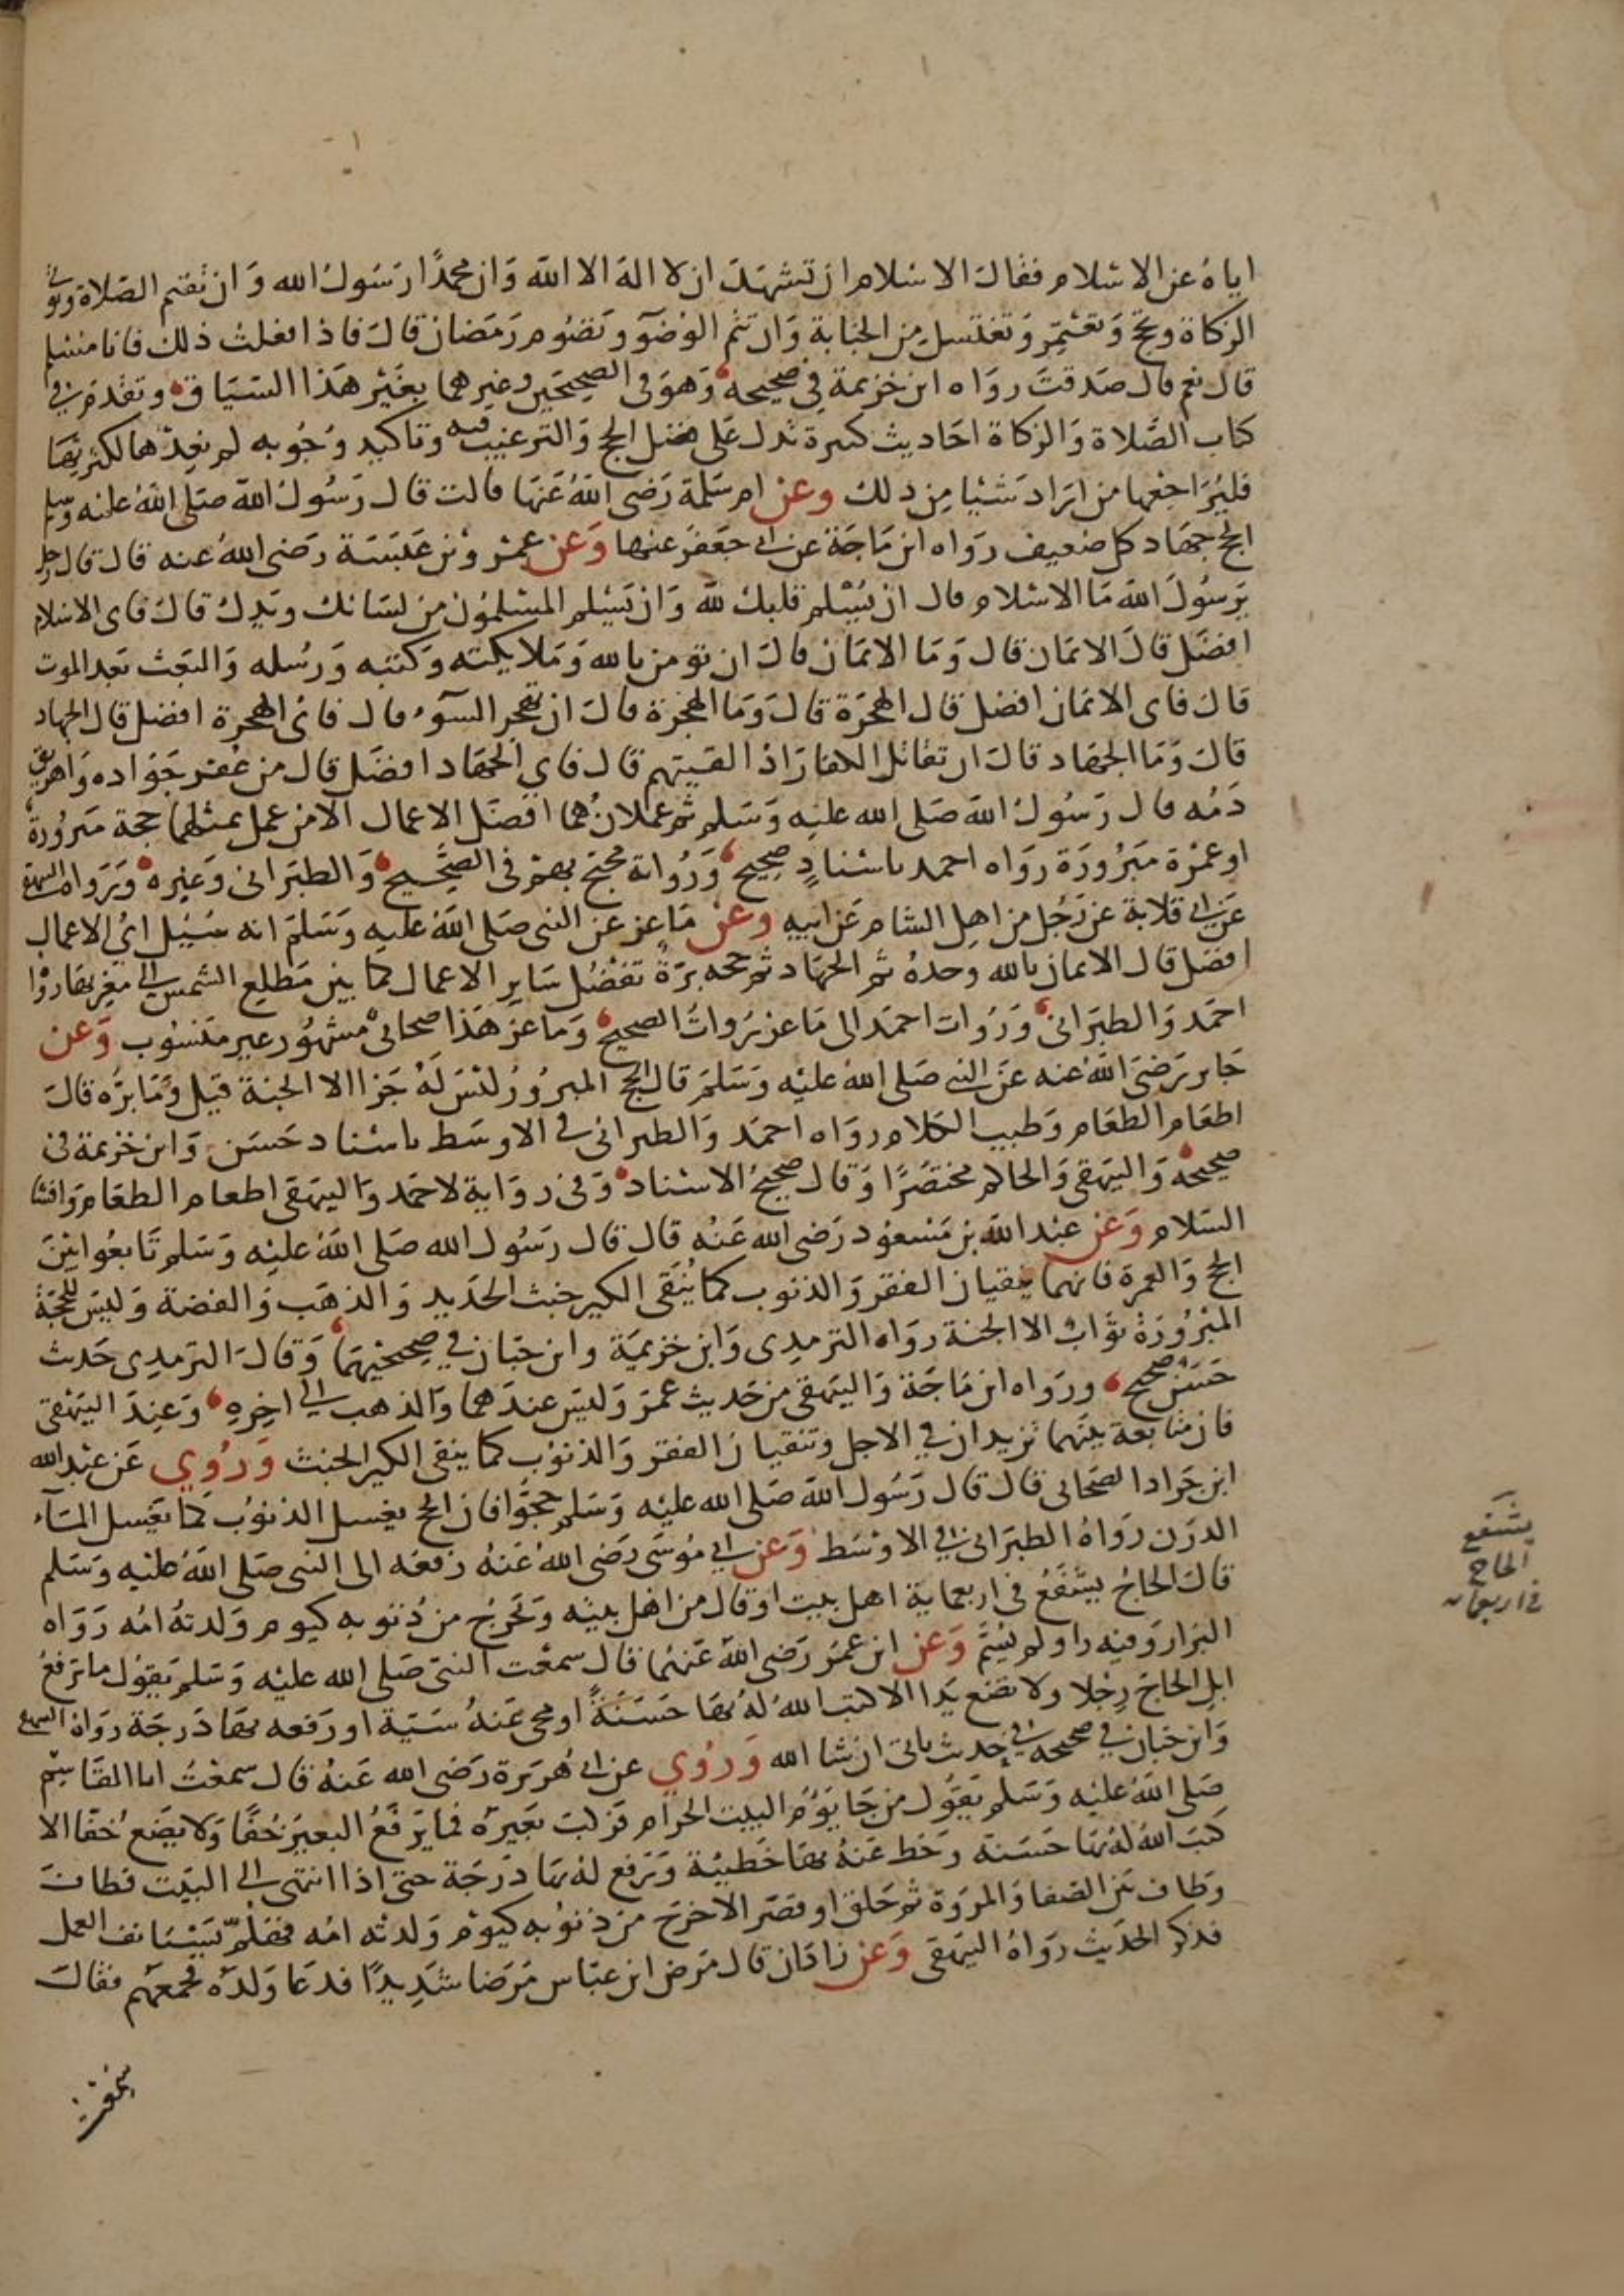 اياه عن الاسلام فقال الاسلام ان تشهد ان لا اله الا الله وان محمدًا رسول الله وان تقيم الصلاة وتوتي
الزكاة وتحج وتعتمر وتغتسل من الجنابة وان تتم الوضوء وتصوم رمضان قال فاذا فعلت ذلك فانا مسلم
قال نعم قال صدقت رواه ابن خزيمة في صحيحه وهو في الصحيحين وغيرهما بغير هذا السياق وتقدم في
كتاب الصلاة والزكاة احاديث كثيرة تدل على فضل الحج والترغيب فيه وتاكيد وجوبه لم نعدها لكثرتها
فليراجعها من اراد شيئا من ذلك وعن ام سلمة رضي الله عنها قالت قال رسول الله صلى الله عليه وسلم
الحج جهاد كل ضعيف رواه ابن ماجة عن ابي جعفر عنها وعن عمرو بن عبسة رضي الله عنه قال قال رجل
يرسول الله ما الاسلام قال ان يسلم قلبك لله وان يسلم المسلمون من لسانك ويدك قال فاي الاسلام
افضل قال الايمان قال وما الايمان قال ان تومن بالله وملايكته وكتبه ورسله والبعث بعد الموت
قال فاي الايمان افضل قال الهجرة قال وما الهجرة قال ان تهجر السوء قال فاي الهجرة افضل قال الجهاد
قال وما الجهاد قال ان تقاتل الكفار اذا لقيتهم قال فاي الجهاد افضل قال من عقر جواده واهريق
دمه قال رسول الله صلى الله عليه وسلم ثم عملان هما افضل الاعمال الا من عمل بمثلهما حجة مبرورة
او عمرة مبرورة رواه احمد باسنادٍ صحيح ورواته محتج بهم في الصحيح والطبراني وغيره ورواه البيهقي
عن ابي قلابة عن رجل من اهل الشام عن ابيه وعن ماعز عن النبي صلى الله عليه وسلم انه سُيل اي الاعمال
افضل قال الايمان بالله وحده ثم الجهاد ثم حجه برة تفضل ساير الاعمال كما بين مطلع الشمس الى مغربها رواه
احمد والطبراني ورواة احمد الى ماعز رواة الصحيح وماعز هذا صحابي مشهور غير منسوب وعن
جابر رضي الله عنه عن النبي صلى الله عليه وسلم قال الحج المبرور ليس له جزا الا الجنة قيل وما بره قال
اطعام الطعام وطيب الكلام رواه احمد والطبراني في الاوسط باسناد حسن وابن خزيمة في
صحيحه والبيهقي والحاكم مختصرًا وقال صحيح الاسناد وفي رواية لاحمد والبيهقي اطعام الطعام وافشا
السلام وعن عبد الله بن مسعود رضي الله عنه قال قال رسول الله صلى الله عليه وسلم تابعوا بين
الحج والعمرة فانهما ينقيان الفقر والذنوب كما يُنقى الكير خبث الحديد والذهب والفضة وليس للحجة
المبرورة ثواب الا الجنة رواه الترمدي وابن خزيمة وابن حبان في صحيحيهما وقال الترمدي حدث
حسن صحيح ورواه ابن ماجة والبيهقي من حديث عمر وليس عندهما والذهب الى اخره وعند البيهقي
فان متابعة بينهما تزيدان في الاجل وتنقيان الفقر والذنوب كما ينقى الكير الخبث وروي عن عبد الله
ابن جراد الصحابي قال قال رسول الله صلى الله عليه وسلم حجوا فان الحج يغسل الذنوب كما يغسل الماء
الدرن رواه الطبراني في الاوسط وعن ابي موسى رضي الله عنه رفعه الى النبي صلى الله عليه وسلم
قال الحاج يشفع في اربعماية اهل بيت او قال من اهل بيته ويخرج من ذنوبه كيوم ولدته امه رواه
البزار وفيه راو لم يُسَمَّ وعن ابن عمر رضي الله عنهما قال سمعت النبي صلى الله عليه وسلم يقول ما ترفع
ابل الحاج رجلا ولا تضع يدا الا كتب الله له بها حسنة او محى عنه سيئة او رفعه بها درجة رواه البيهقي
وابن حبان في صحيحه في حديث ياتي ان شا الله وروي عن ابي هريرة رضي الله عنه قال سمعت ابا القاسم
صلى الله عليه وسلم يقول من جا يؤم البيت الحرام فركب بعيره فما يرفع البعير خفا ولا يضع خفا الا
كتب الله له بها حسنة وحط عنه بها خطيئة ورفع له بها درجة حتى اذا انتهى الى البيت فطاف
وطاف بين الصفا والمروة ثم حلق او قصر الا خرج من ذنوبه كيوم ولدته امه فهلم يستانف العمل
فذكر الحديث رواه البيهقي وعن زاذان قال مرض ابن عباس مرضا شديدًا فدعا ولده فجمعهم فقال
يشفع
الحاج
في اربعمايه